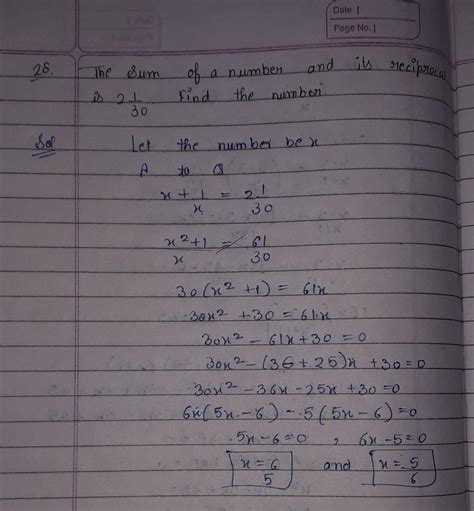 Date |
Page No. |
28. The sum of a number and its reciprocal
is 2 1/30. Find the number.
Sol Let the number be x
A to Q
x + 1/x = 2 1/30
x²+1/x = 61/30
30(x² + 1) = 61x
30x² + 30 = 61x
30x² - 61x + 30 = 0
30x² - (36 + 25)x + 30 = 0
30x² - 36x - 25x + 30 = 0
6x(5x - 6) - 5(5x - 6) = 0
5x - 6 = 0 , 6x - 5 = 0
x = 6/5 and x = 5/6